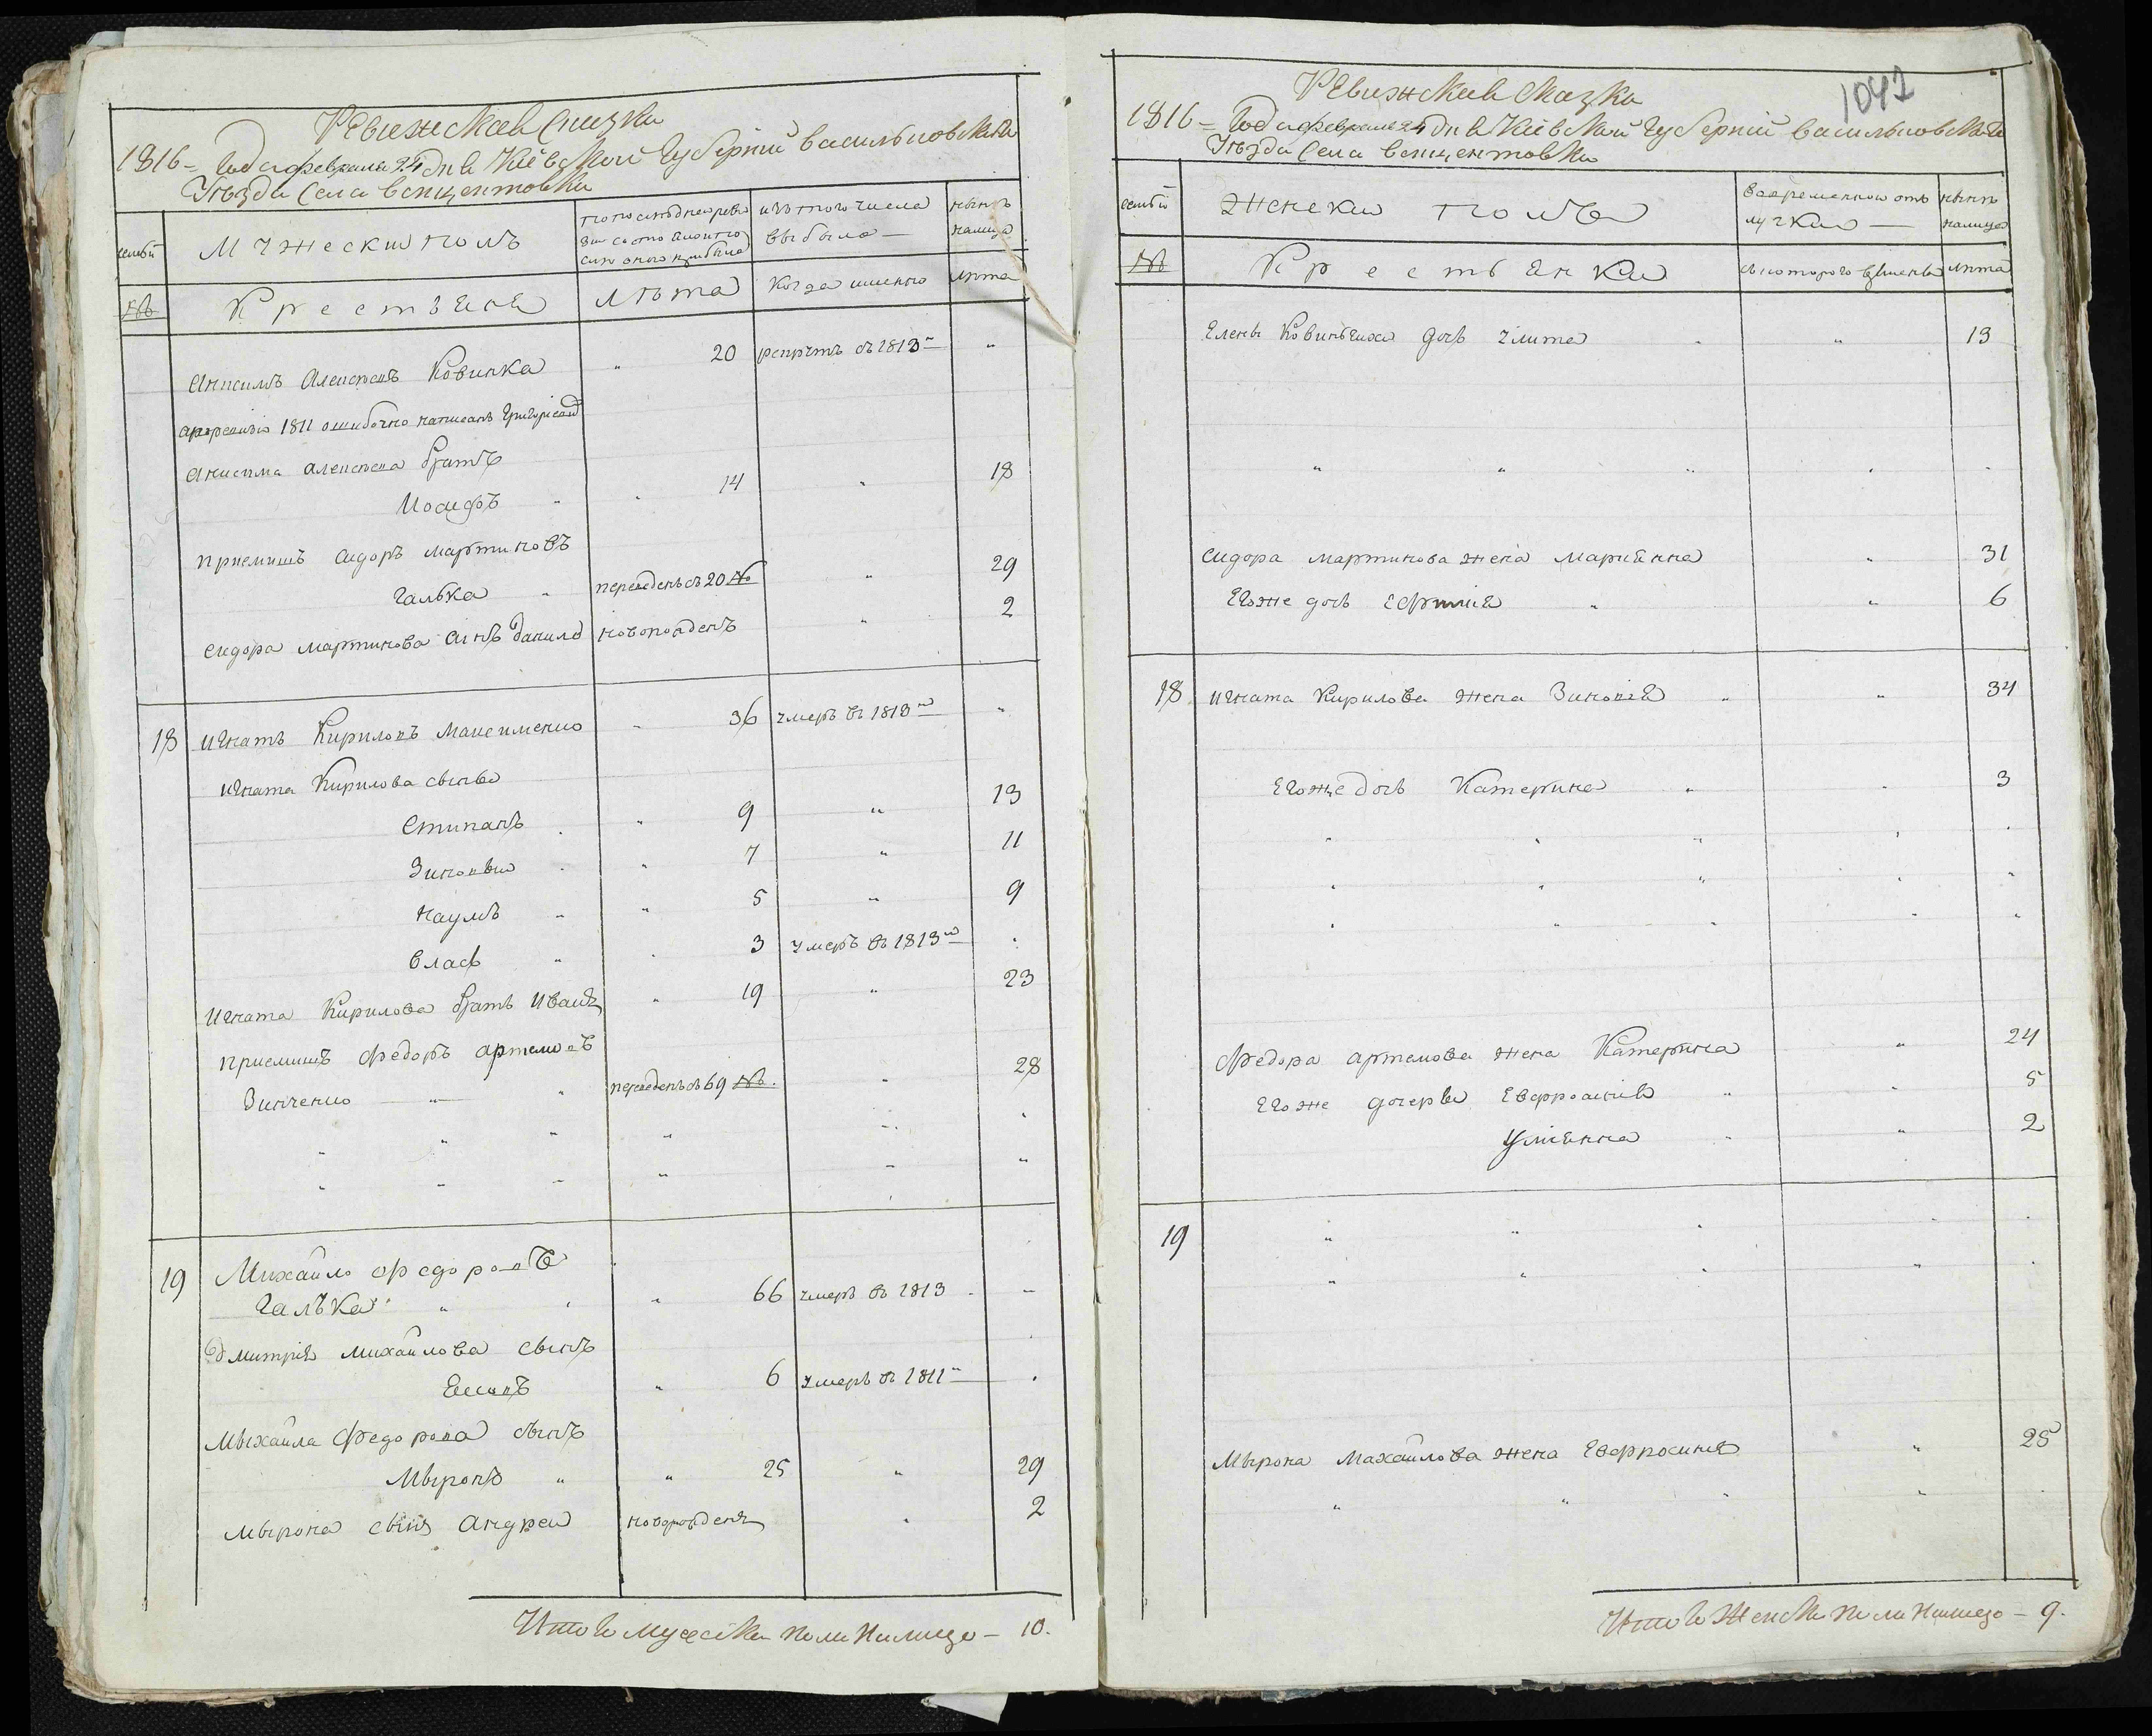 Ревижская сказка
1816 = Года февраля 24 дня Киевской Губернии васильковского
Уезда Села венцентовки
семьи
Мужеский полъ
по последней ревизии состояло и по
сле оного прибыло
изъ того числа
выбыло
ныне
налицо
№
Крестьяне
Лета
Когда именно
лета
Анисимъ Алексеевъ Ковинка " 20 рекрутъ въ 1813м "
а по ревизіи 1811 ошибочно написанъ Григоріемъ
Анисима Алексеева братъ
Иосифъ 14 " 18
приемишъ Сидоръ мартиновъ
Галька переведенъ съ 20 № " 29
Сидора мартинова синъ данило новорожденъ " 2
18 Игнатъ Кириловъ Максименко 36 умеръ въ 1813м "
Игната Кирилова сыновья
Стипанъ 9 " 13
Зиновий 7 " 11
Наумъ 5 " 9
Власъ 3 умеръ въ 1813м
Игната Кирилова братъ Иванъ 19 " 23
приемишъ Федоръ Артемовъ
Зинченко переведенъ съ 69 № " 28
19 Михайло Федоровъ
Галъка " 66 умеръ въ 1813 "
Дмитрия Михайлова сынъ
6 умеръ въ 1811
Мыхайла Федорова сынъ
Мыронъ " 25 " 29
Мырона сынъ Андрей новорожденъ 2
Итого мужеска пола налицо — 10.
1042
Ревижская сказка
1816 = Года февраля 24 дня Киевской Губернии васильковского
Уезда Села венцентовки
семьи
Женский полъ
во временной отлучки
ныне
налицо
№
Крестьянки
съ которого времени
лета
Елены Ковинъкихи дочь Улита " 13
Сидора мартинова жена Марианна " 31
Его же дочь Ефимия " 6
18 Игната Кирилова жена Зиновия " 34
Его же дочь Катерина 3
Федора Артемова жена Катерина " 24
Его же дочери Евфросиния 5
Улианна " 2
19
Мырона Махайлова жена Евфросиния " 25
Итого Женска пола налицо — 9.